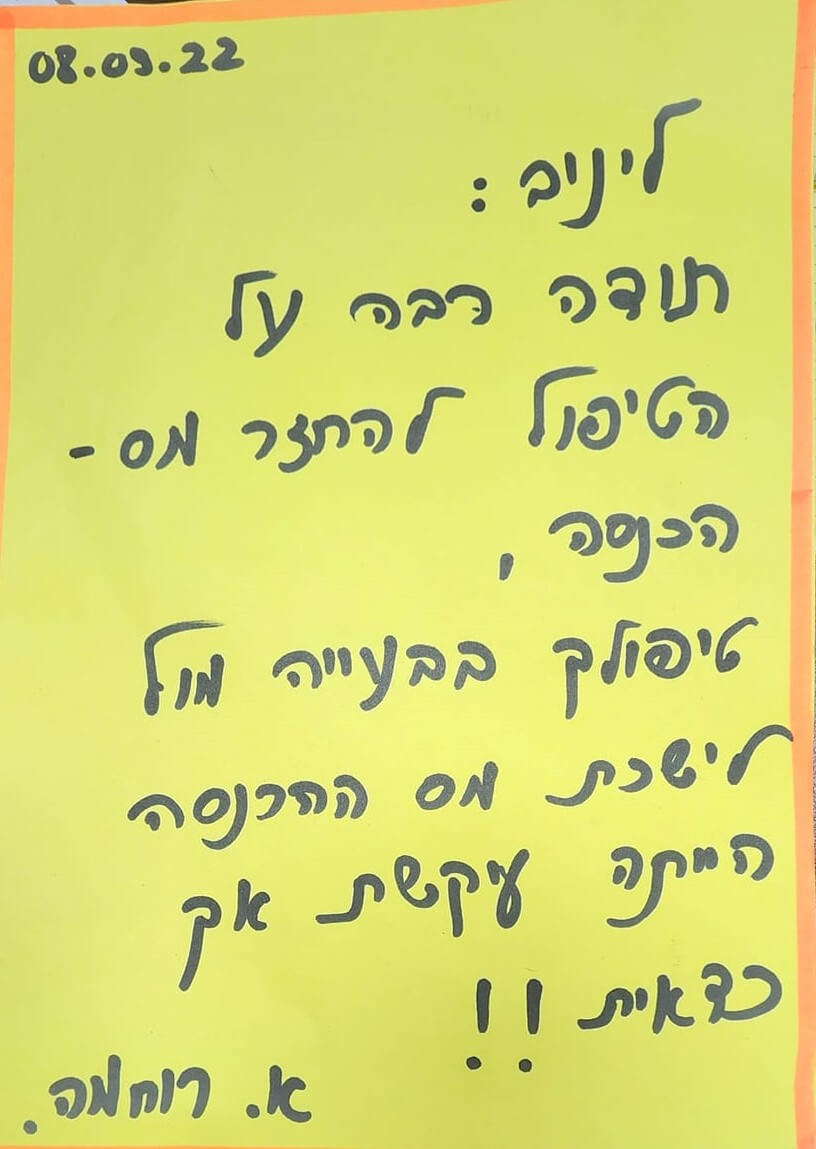 08.03.22
ליניב :
תודה רבה על
הטיפול להחזר מס -
הכנסה ,
טיפולך בבעייה מול
לישכת מס ההכנסה
הייתה עיקשת אך
כדאית !!
א. רוחמה.